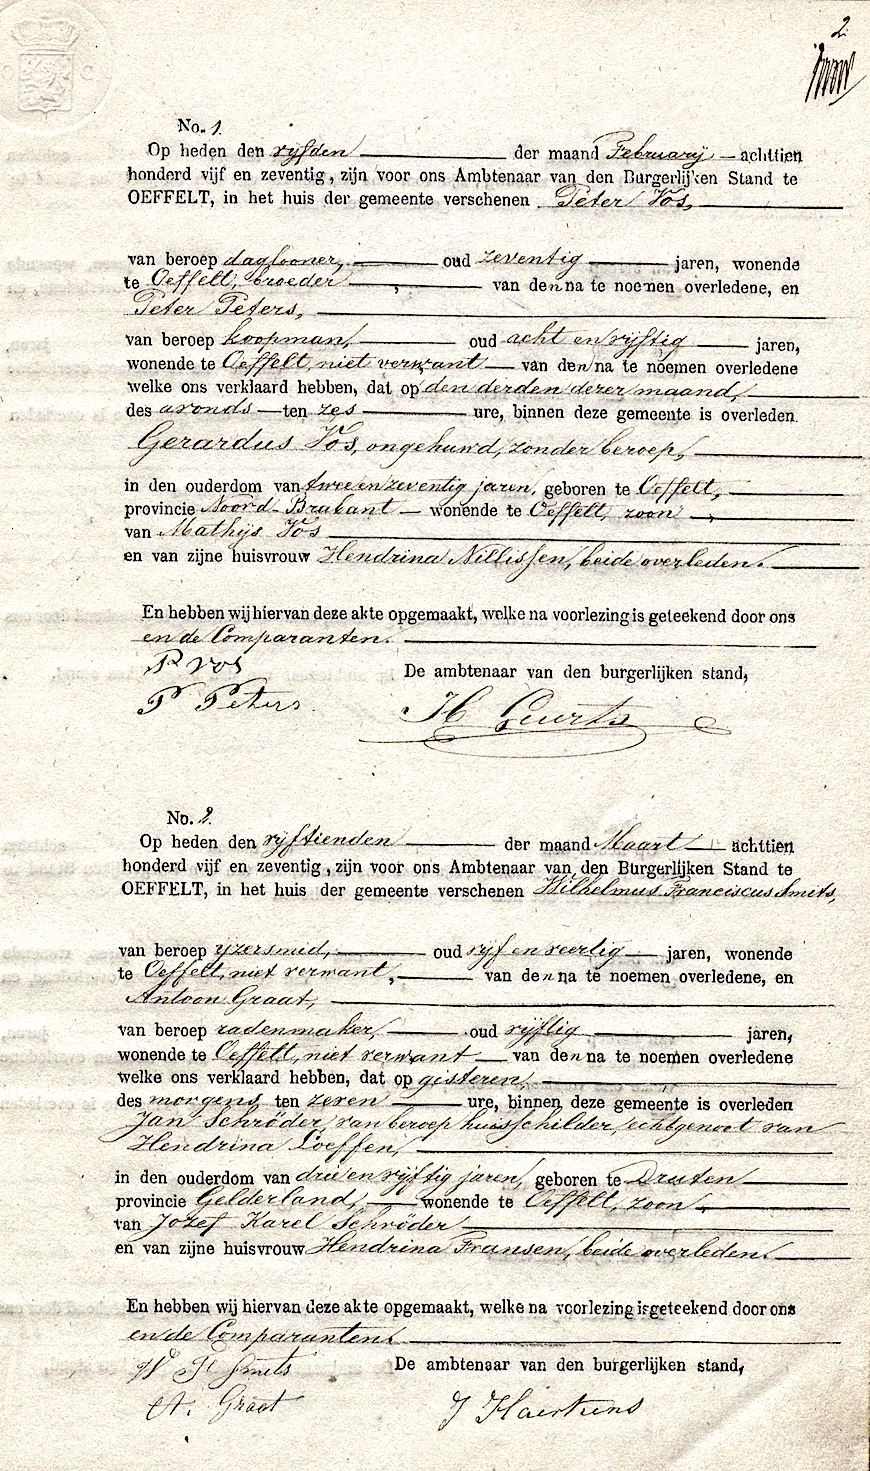 2
No. 1.
Op heden den vijfden der maand Februarij achttien
honderd vijf en zeventig, zijn voor ons Ambtenaar van den Burgerlijken Stand te
OEFFELT, in het huis der gemeente verschenen Peter Vos,
van beroep daglooner, oud zeventig jaren, wonende
te Oeffelt, broeder, van den na te noemen overledene, en
Peter Peters,
van beroep koopman, oud acht en vijftig jaren,
wonende te Oeffelt, niet verwant van den na te noemen overledene
welke ons verklaard hebben, dat op den derden dezer maand,
des avonds ten zes ure, binnen deze gemeente is overleden.
Gerardus Vos, ongehuwd, zonder beroep,
in den ouderdom van twee en zeventig jaren, geboren te Oeffelt,
provincie Noord-Brabant wonende te Oeffelt, zoon,
van Mathijs Vos
en van zijne huisvrouw Hendrina Nillissen, beide overleden.
En hebben wij hiervan deze akte opgemaakt, welke na voorlezing is geteekend door ons
en de Comparanten.
P Vos
De ambtenaar van den burgerlijken stand,
P Peters
H Geurts
No. 2.
Op heden den vijftienden der maand Maart achttien
honderd vijf en zeventig, zijn voor ons Ambtenaar van den Burgerlijken Stand te
OEFFELT, in het huis der gemeente verschenen Wilhelmus Franciscus Smits,
van beroep ijzersmid, oud vijf en veertig jaren, wonende
te Oeffelt, niet verwant, van den na te noemen overledene, en
Antoon Graat,
van beroep radenmaker, oud vijftig jaren,
wonende te Oeffelt, niet verwant van den na te noemen overledene
welke ons verklaard hebben, dat op gisteren,
des morgens ten zeven ure, binnen deze gemeente is overleden
Jan Schröder, van beroep huisschilder, echtgenoot van
Hendrina Loeffen,
in den ouderdom van drie en vijftig jaren, geboren te Druten
provincie Gelderland, wonende te Oeffelt, zoon,
van Jozef Karel Schröder
en van zijne huisvrouw Hendrina Fransen, beide overleden.
En hebben wij hiervan deze akte opgemaakt, welke na voorlezing is geteekend door ons
en de Comparanten.
W F Smits
De ambtenaar van den burgerlijken stand,
A. Graat
J Haerkens